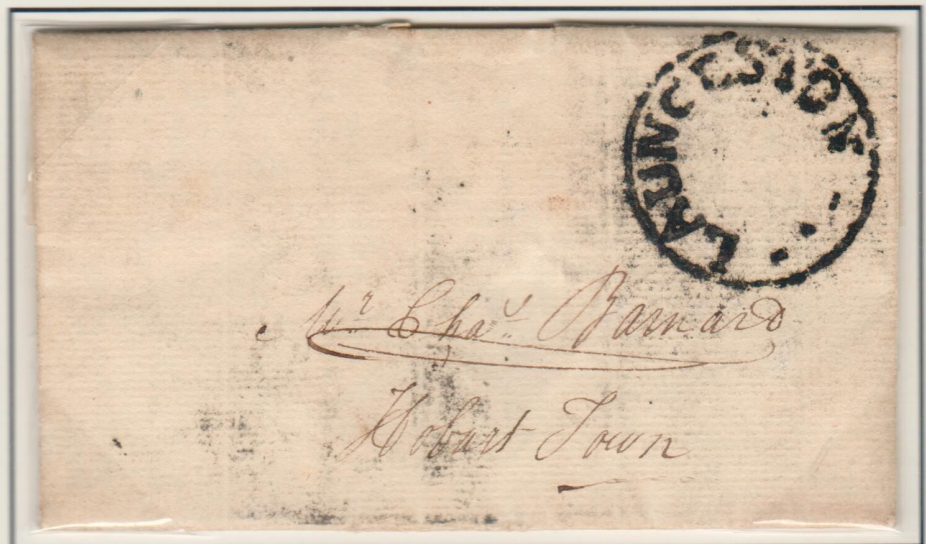 LAUNCESTON
Mr. Chas. Barnard
Hobart Town